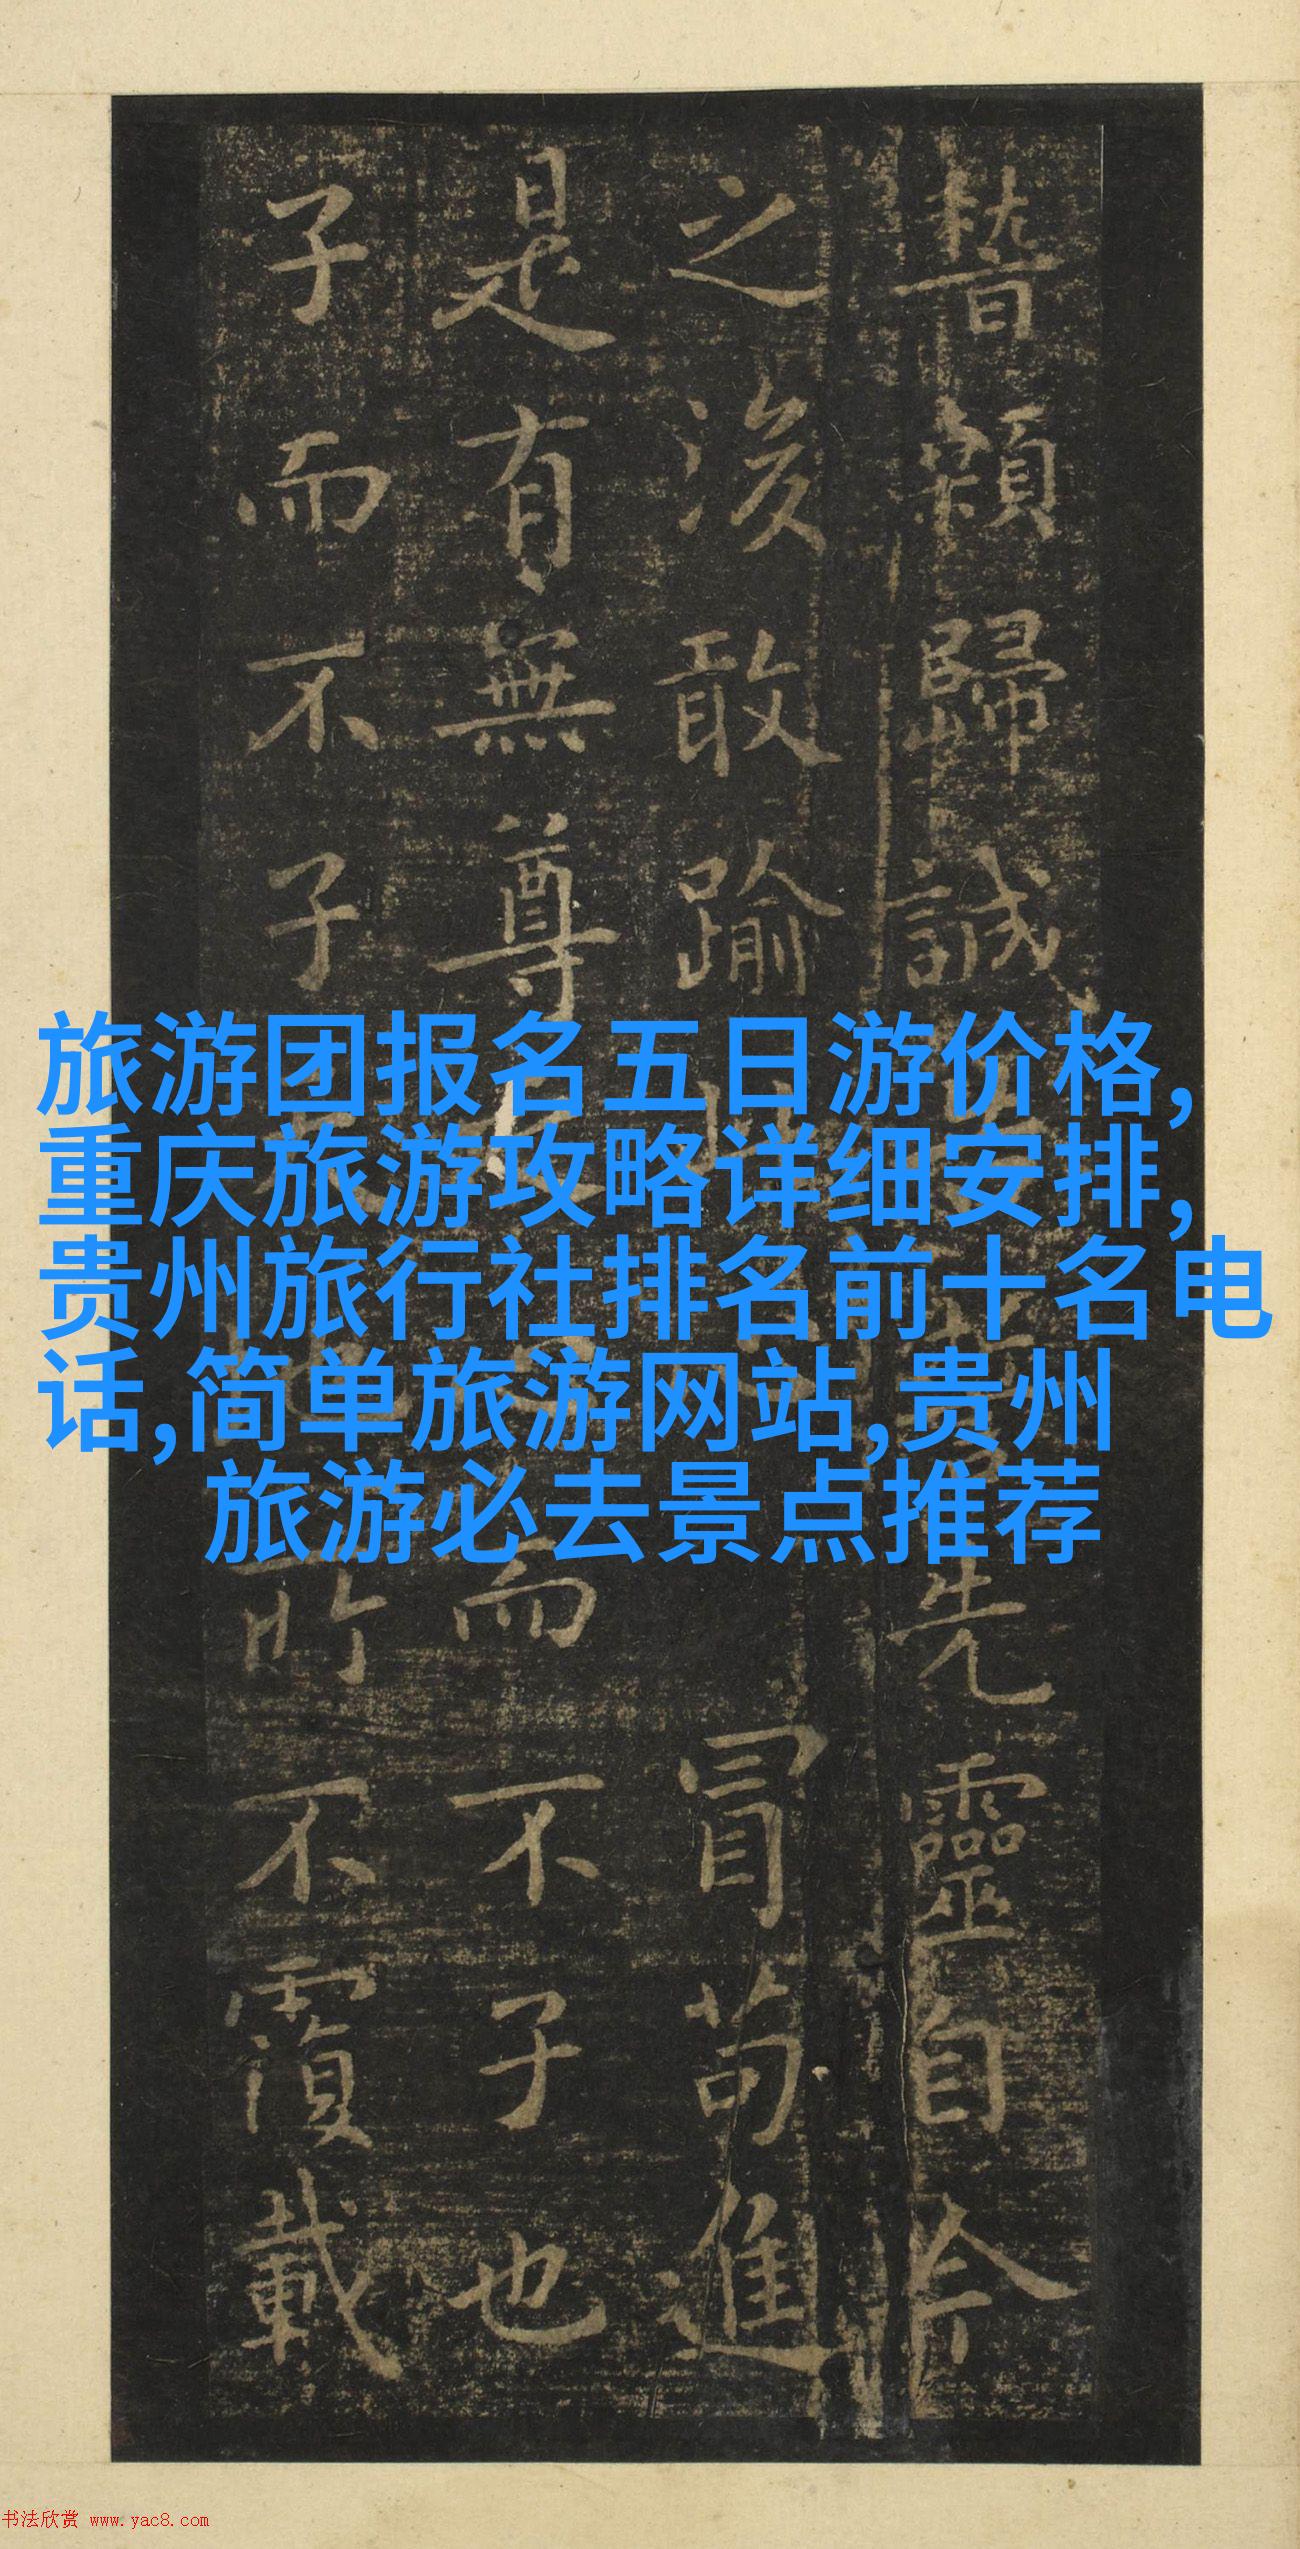 稽顙歸誠
先靈自今
之後敢踰
冒苟進
是有無尊
而不子也
子而不子
所不覆載
旅游团报名五日游价格,
重庆旅游攻略详细安排,
贵州旅行社排名前十名电
话,简单旅游网站,贵州
旅游必去景点推荐
书法欣赏 www.yac8.com